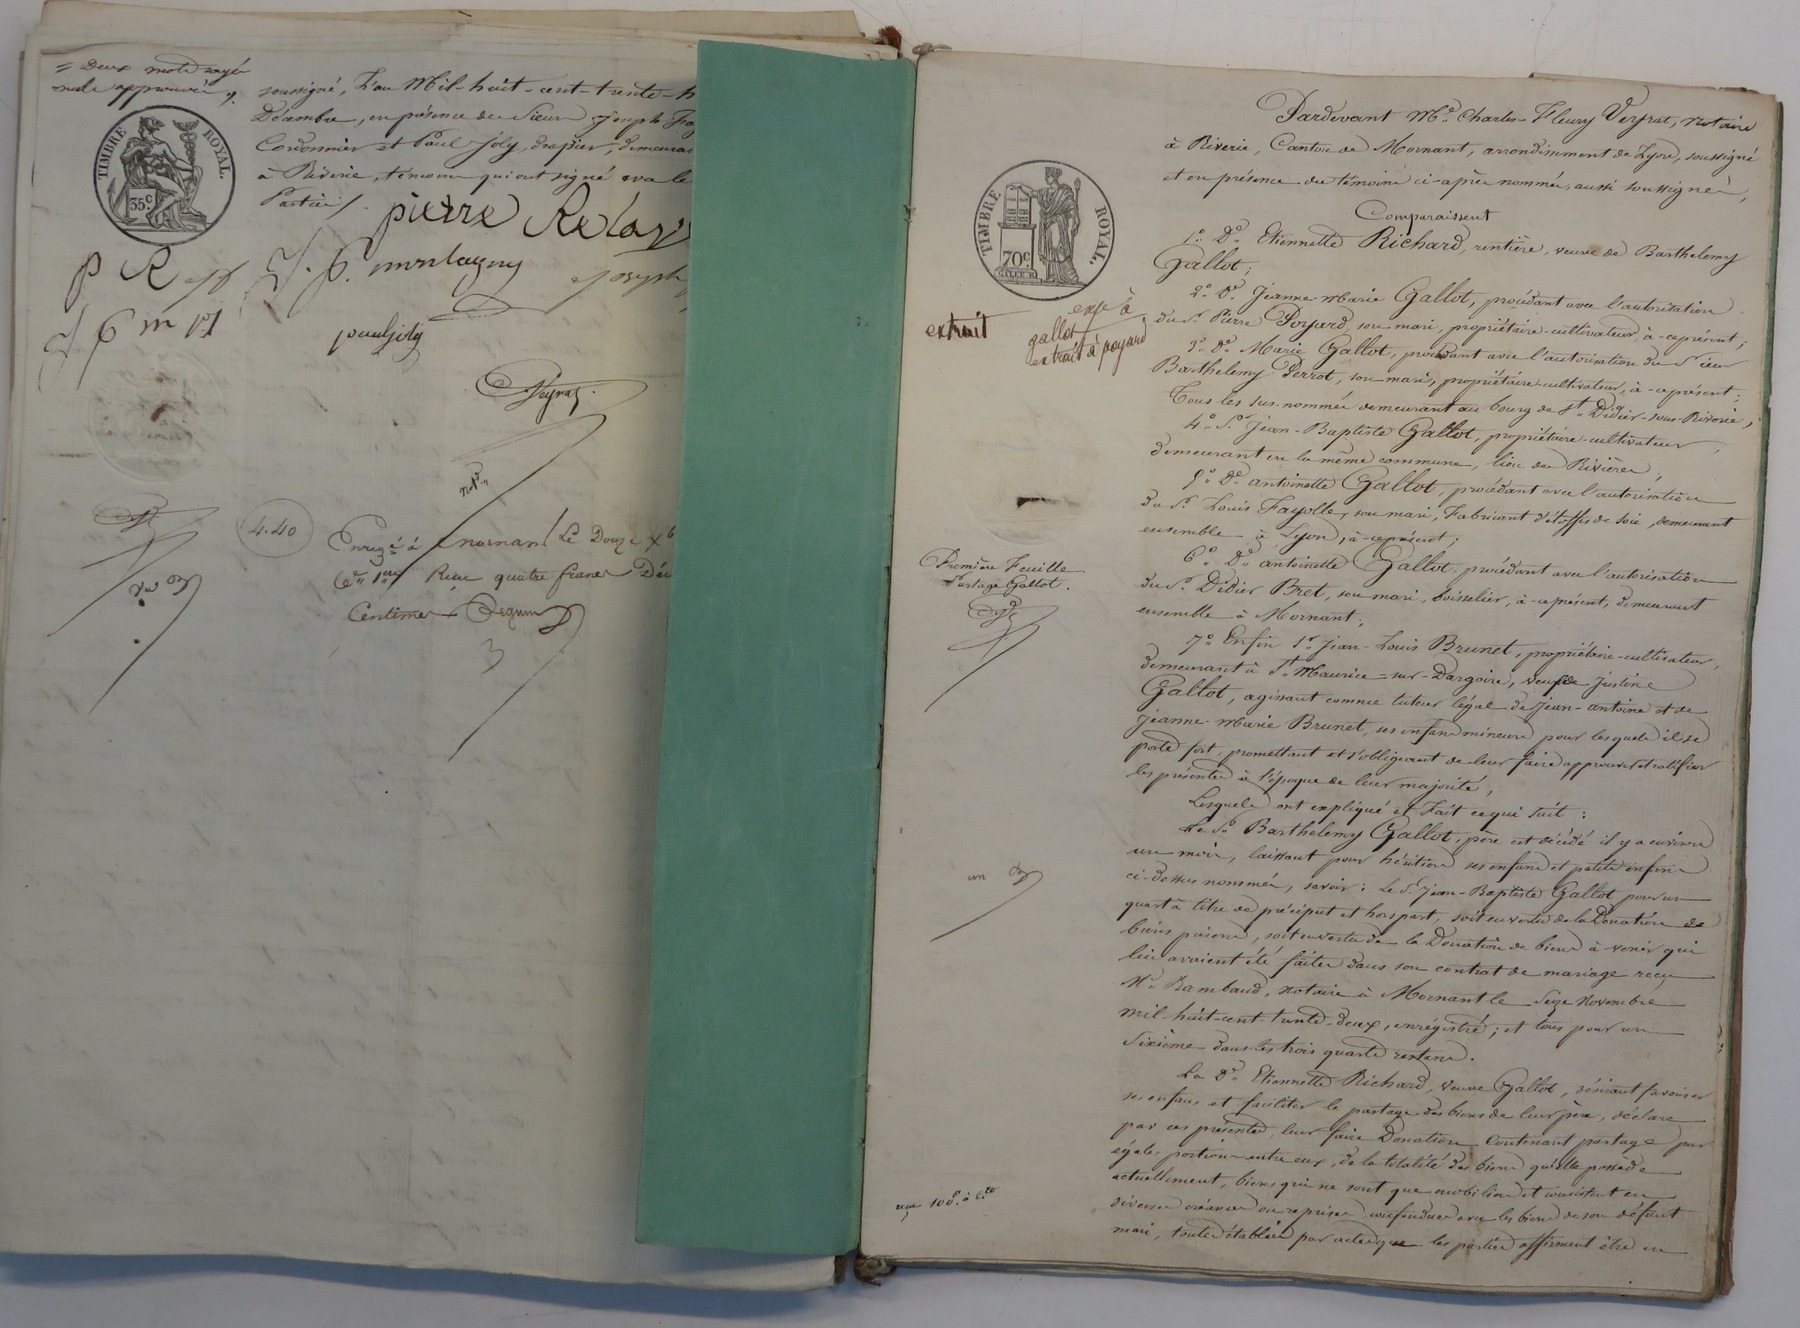 = Deux mots rayés
nuls approuvés ./.
TIMBRE ROYAL.
35c
soussigné, L'an Mil-huit-cent-trente-h
Décembre, en présence des Sieurs Joseph Fa
Cordonnier et Paul Joly, drapier, demeura
à Riverie, témoins qui ont signé avec le
Parties ./.
pierre Relav
P R
J. P. montagny
joseph
J P m
pauljoly
Veyrat
4.40
Enregé à mornant Le Douze Xb
Reçu quatre francs Déc
Centimes
3
Pardevant Me Charles-Fleury Veyrat, notaire
à Riverie, Canton de Mornant, arrondissement de Lyon, soussigné
et en présence des témoins ci-après nommés, aussi soussignés,
Comparaissent
TIMBRE ROYAL.
70c
1o De Etiennette Richard, rentière, veuve de Barthelemy
Gallot;
2o De Jeanne-Marie Gallot, procédant avec l'autorisation
du Sr Pierre Poyard, son mari, propriétaire-cultivateur, à-ce présent;
3o De Marie Gallot, procédant avec l'autorisation du Sieur
Barthelemy Perrot, son mari, propriétaire-cultivateur, à-ce présent;
Tous les sus-nommés demeurant au bourg de St Didier-sous-Riverie;
4o Sr Jean-Baptiste Gallot, propriétaire-cultivateur,
demeurant en la même commune, lieu des Rivières;
5o De antoinette Gallot, procédant avec l'autorisation
du Sr Louis Fayolle, son mari, Fabricant d'étoffes de soie, demeurant
ensemble à Lyon, à-ce présent;
6o De antoinette Gallot, procédant avec l'autorisation
du Sr Didier Bret, son mari, boisselier, à-ce présent, demeurant
ensemble à Mornant;
7o Enfin Sr Jean-Louis Brunet, propriétaire-cultivateur,
demeurant à St Maurice-sur-Dargoire, veuf de Justine
Gallot, agissant comme tuteur légal de Jean-antoine et de
Jeanne-Marie Brunet, ses enfans mineurs pour lesquels il se
porte fort, promettant et s'obligeant de leur faire approuver et ratifier
les présentes à l'époque de leur majorité,
Lesquels ont expliqué et Fait ce qui suit :
Le Sr Barthelemy Gallot, père est décédé il y a environ
un mois, laissant pour héritiers ses enfans et petits enfans
ci-dessus nommés, savoir : Le Sr Jean-Baptiste Gallot pour un
quart à titre de préciput et hors part, soit en vertu de la Donation de
biens présens, soit en vertu de la Donation de biens à venir qui
lui avaient été faites dans son contrat de mariage reçu
Me Rambaud, notaire à Mornant le Seize Novembre
mil-huit-cent-trente-deux, enrégistré; et tous pour un
Sixième dans les trois quarts restans.
La De Etiennette Richard, veuve Gallot, désirant favoriser
ses enfans et faciliter le partage des biens de leur père, déclare
par ces présentes, leur faire Donation contenant partage par
égales portions entre eux, de la totalité des biens qu'elle possède
actuellement, biens qui ne sont que mobiliers et consistent en
diverses créances ou reprises confondues avec les biens de son défunt
mari, toutes établies par actes que les parties affirment être en
extrait
expé à
gallot
extrait à poyard
Première Feuille
Partage Gallot.
un